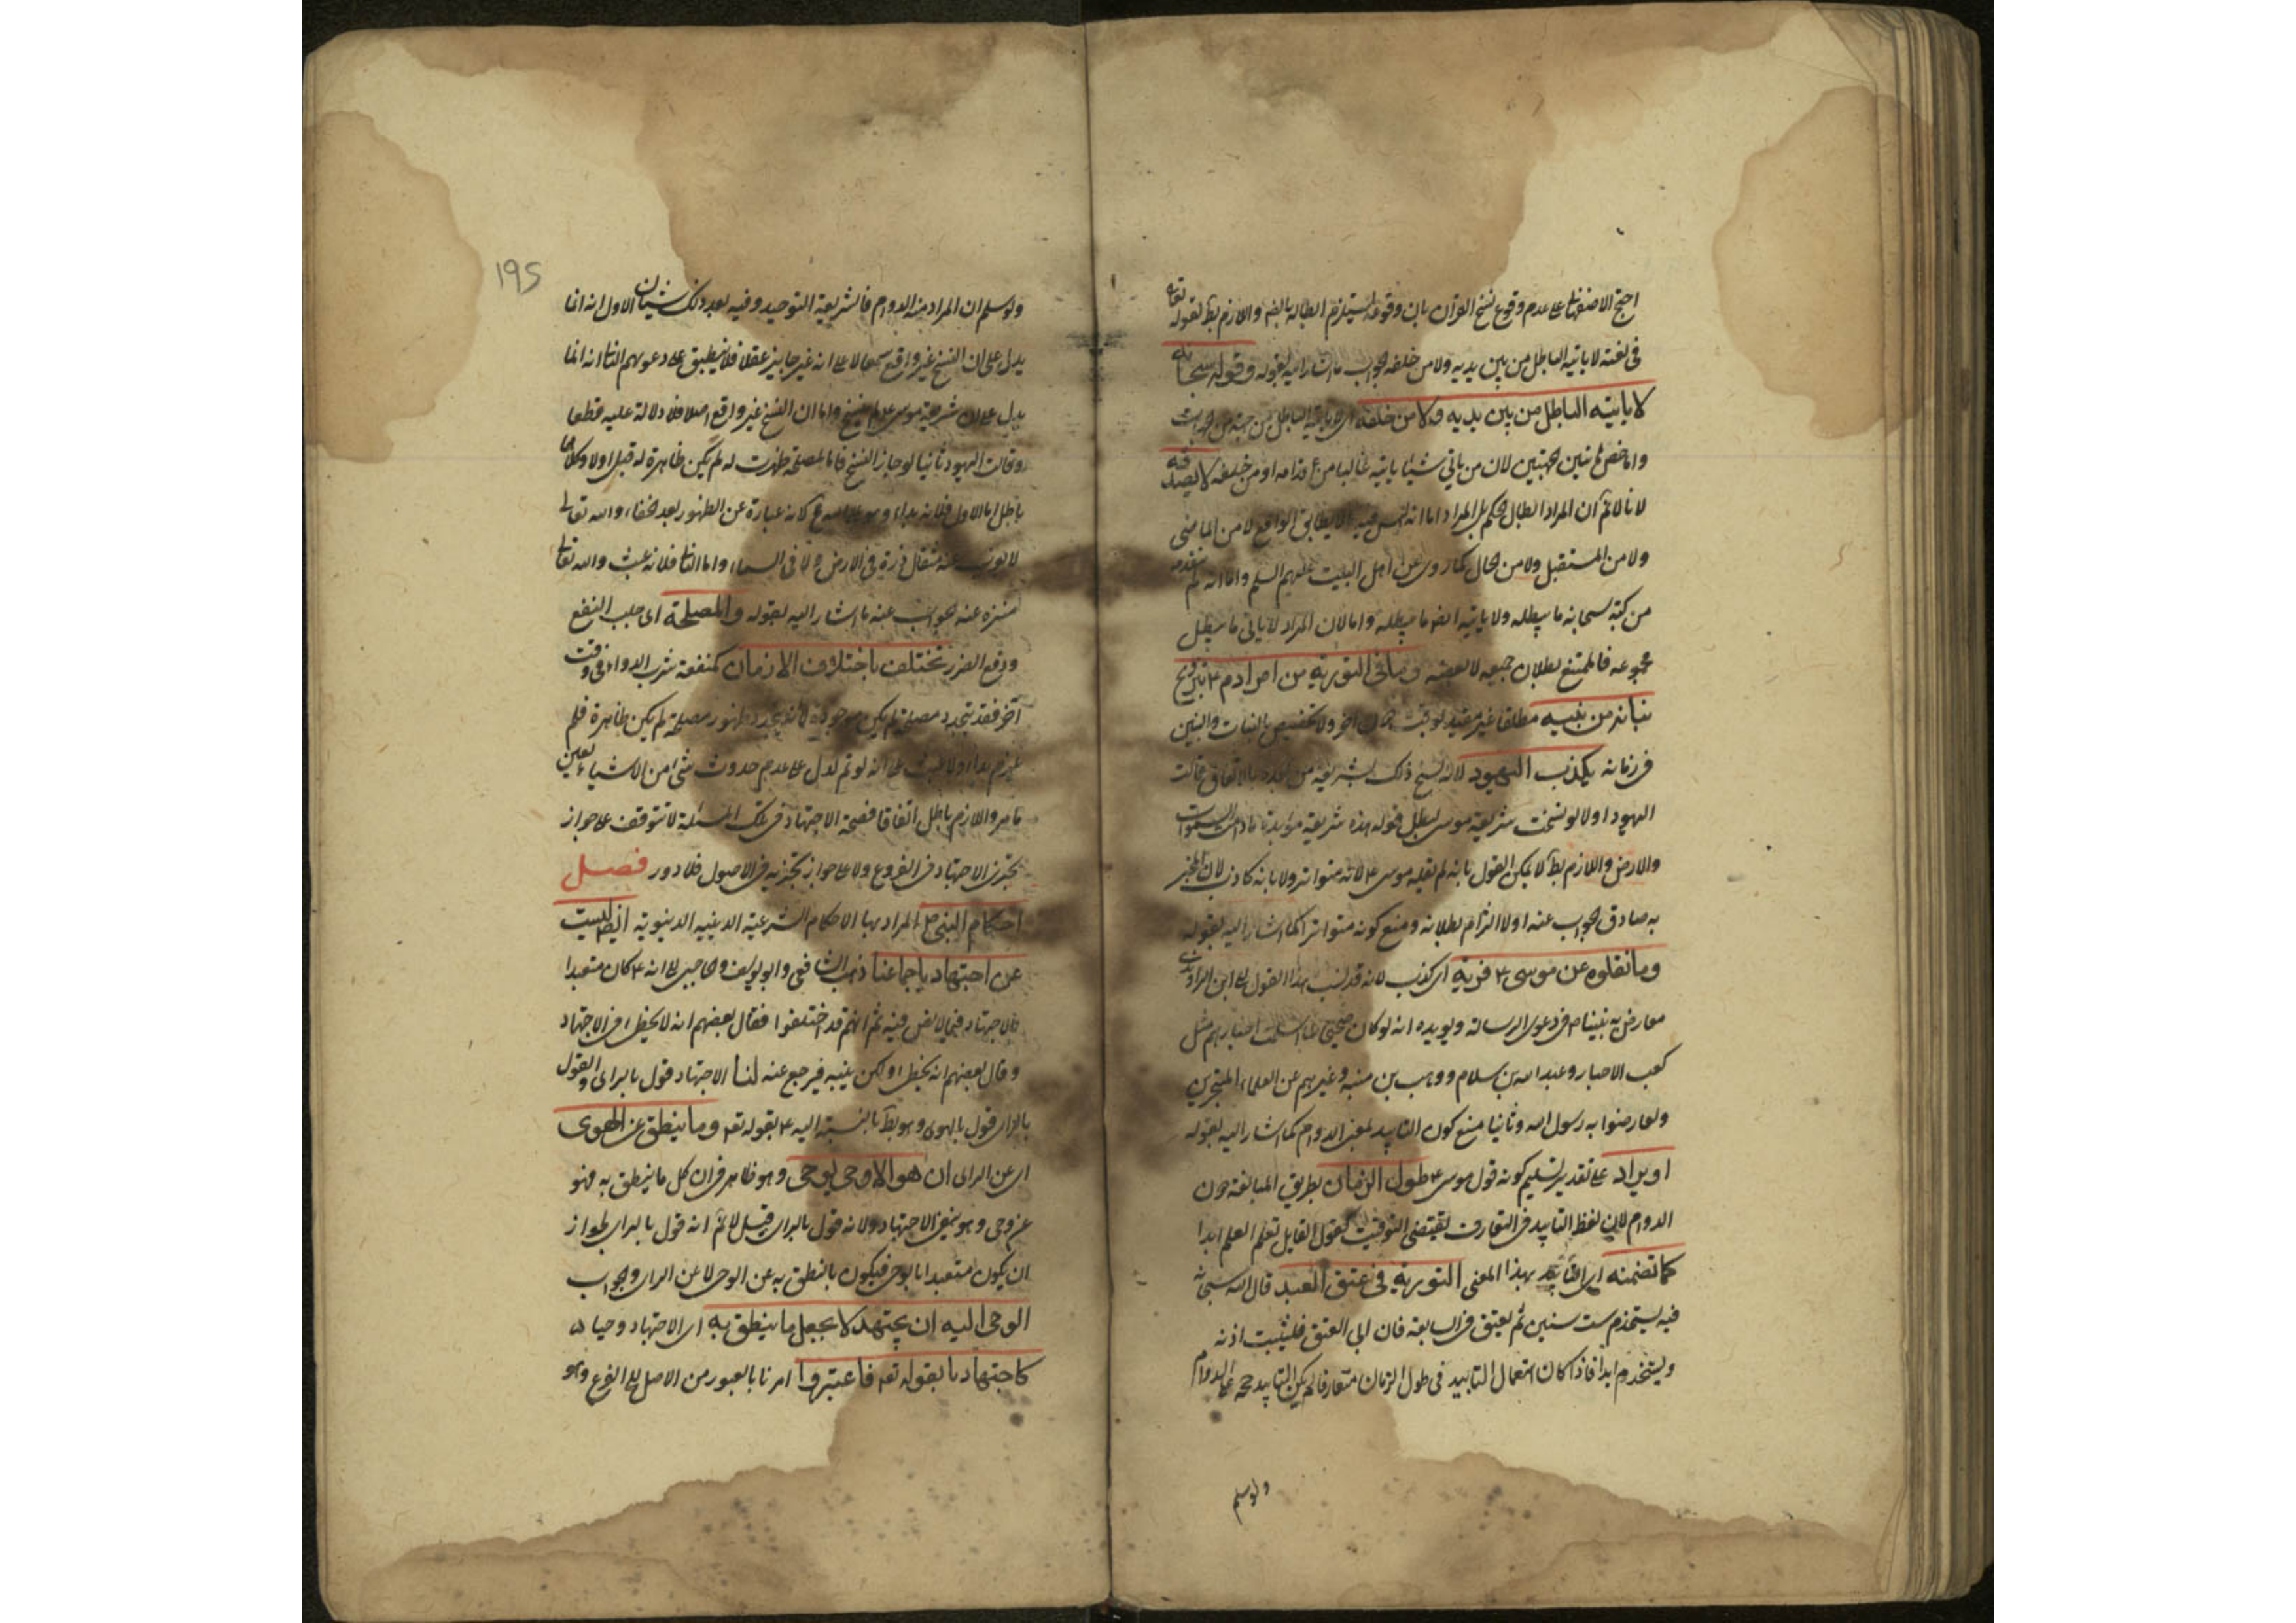 احتج الاصفهانى على عدم وقوع نسخ القرآن بان وقوعه يستلزم ابطاله بالضم واللازم بط لقوله تعالى
فى نعته لا ياتيه الباطل من بين يديه ولا من خلفه الجواب ما اشار اليه بقوله وقوله سبحانه
لا ياتيه الباطل من بين يديه ولا من خلفه اى لا ياتيه الباطل من جهة من الجهات
وانما خص هاتين الجهتين لان من ياتى شيئا ياتيه غالبا من قدامه او من خلفه لا يصدقه
لانا لا نم ان المراد ابطال الحكم بل المراد اما انه ليس فيه ما لا يطابق الواقع لا من الماضى
ولا من المستقبل ولا من الحال كما روى عن اهل البيت عليهم السلم واما انه لم يتقدمه
من كتبه سبحانه ما يبطله ولا ياتيه ايضا ما يبطله واما لان المراد لا ياتى ما يبطل
مجموعه فالممتنع بطلان جميعه لا بعضه وما فى التورية من امر ادم ع بتزويج
بناته من بنيه مطلقا غير مقيد بوقت دون آخر ولا تخصيص بالبنات والبنين
فى زمانه يكذب اليهود لانه نسخ ذلك بشريعة من بعده بالاتفاق قالت
اليهود اولا لو نسخت شريعة موسى لبطل قوله هذه شريعة مؤبدة ما دامت السموات
والارض واللازم بط لا يمكن القول بانه لم يقله موسى ع لانه متواتر ولا بانه كاذب لان المخبر
به صادق الجواب عنه اولا التزام بطلانه ومنع كونه متواترا كما اشار اليه بقوله
وما نقلوه عن موسى ع فرية اى كذب لانه قد نسب هذا القول الى ابن الراوندى
معارض به نبينا ص فى دعوى الرسالة ويويده انه لو كان صحيحا لما اسلمت احبارهم مثل
كعب الاحبار وعبد الله بن سلام ووهب بن منبه وغيرهم من العلماء المتبحرين
ولعارضوا به رسول الله وثانيا منع كون التابيد بمعنى الدوام كما اشار اليه بقوله
او يراد على تقدير تسليم كونه قول موسى ع طول الزمان بطريق المبالغة دون
الدوام لان لفظ التابيد فى التعارف يقتضى التوقيت كقول القايل تعلم العلم ابدا
كما تضمنه اى التابيد بهذا المعنى التورية فى عتق العبد قال الله سبحانه
فيه يستخدم ست سنين ثم يعتق فى السابعة فان ابى العتق فليثقب اذنه
ويستخدم ابدا فاذا كان استعمال التابيد فى طول الزمان متعارفا لم يكن التابيد حجة على الدوام
ولو سلم
195
ولو سلم ان المراد منه الدوام فالشريعة التوحيد وفيه بعد ذلك شيئان الاول انه انما
يدل على ان النسخ غير واقع سمعا لا على انه غير جايز عقلا فلا ينطبق على دعويهم الثانى انه انما
يدل على ان شريعة موسى ع لم ينسخ واما ان النسخ غير واقع اصلا فلا دلالة عليه قطعا
وقالت اليهود ثانيا لو جاز النسخ فاما لمصلحة ظهرت له لم يكن ظاهرة له قبل او لا وكلاهما
باطل اما الاول فلانه بداء وهو على الله مح لانه عبارة عن الظهور بعد الخفاء والله تعالى
لا يعزب عنه مثقال ذرة فى الارض ولا فى السماء واما الثانى فلانه عبث والله تعالى
منزه عنه الجواب عنه ما اشار اليه بقوله والمصلحة اى جلب النفع
ودفع الضرر تختلف باختلاف الازمان كمنفعة شرب الدواء فى وقت
آخر فقد يتجدد مصلحة لم يكن موجودة لا انه يتجدد ظهور مصلحة لم يكن ظاهرة فلم
يلزم بداء ولا عبث على انه لو تم لدل على عدم حدوث شئ من الاشياء بعين
ما مر واللازم باطل اتفاقا فصحة الاجتهاد فى تلك المسئلة لا تتوقف على جواز
تجزى الاجتهاد فى الفروع ولا على جواز تجزيه فى الاصول فلا دور فصل
احكام النبى ص المراد بها الاحكام الشرعية الدينية الدنيوية ايضا ليست
عن اجتهاد باجماعنا ذهب الشافعى وابو يوسف والحاجبى الى انه ع كان متعبدا
بالاجتهاد فيما لا نص فيه ثم انهم قد اختلفوا فقال بعضهم انه لا يخطئ فى الاجتهاد
وقال بعضهم انه يخطئ ولكن ينبه فيرجع عنه لنا الاجتهاد قول بالراى والقول
بالراى قول بالهوى وهو بط بالنسبة اليه ع بقوله تعه وما ينطق عن الهوى
اى عن الراى ان هو الا وحى يوحى وهو ظاهر فى ان كل ما ينطق به فهو
عن وحى وهو ينفى الاجتهاد ولانه قول بالراى قيل لا نم انه قول بالراى لجواز
ان يكون متعبدا بالوحى فيكون ما ينطق به عن الوحى لا عن الراى والجواب
الوحى اليه ان يجتهد لا يجعل ما ينطق به اى الاجتهاد وحيا
كاجتهادنا بقوله تعه فاعتبروا امرنا بالعبور من الاصل الى الفرع وهو